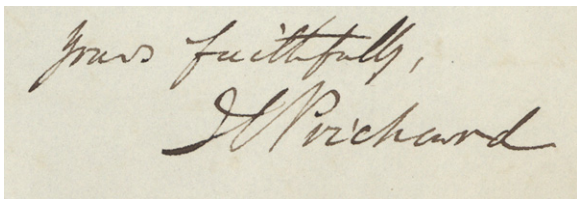 Yours faithfully,
J C Prichard